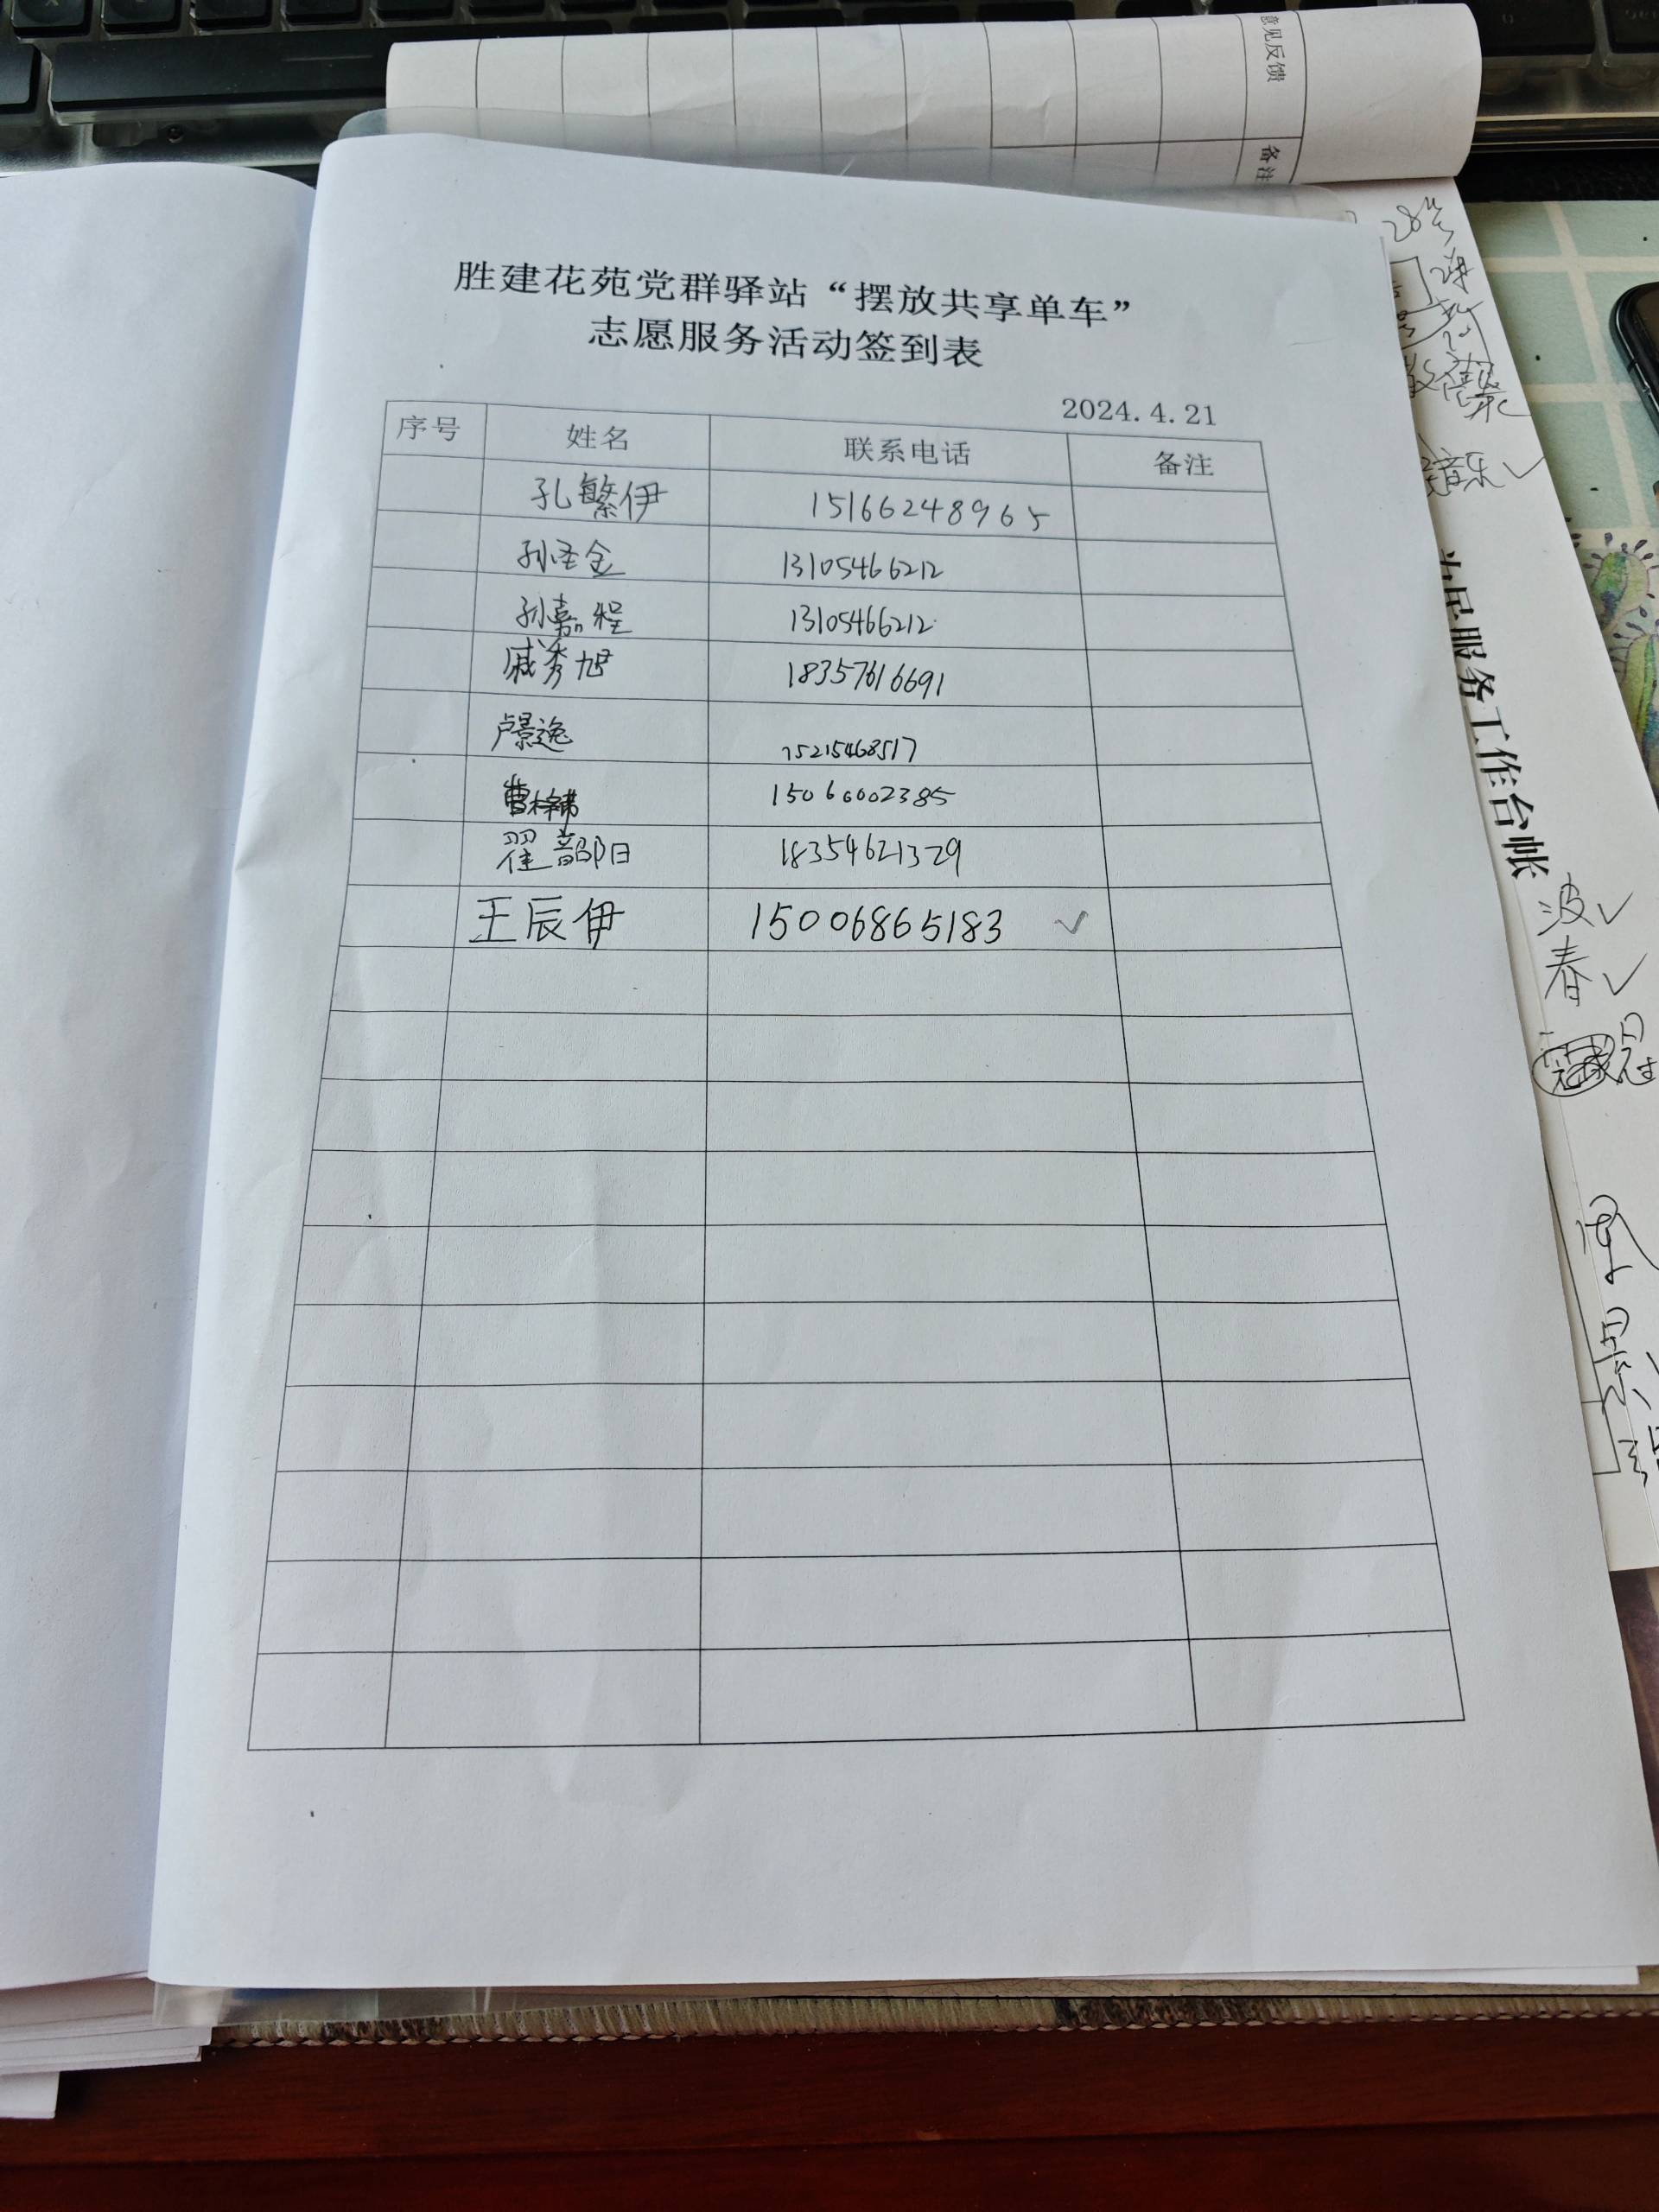 意见反馈
备注
胜建花苑党群驿站“摆放共享单车”
志愿服务活动签到表
2024.4.21
序号 姓名 联系电话 备注
孔繁伊 15166248965
孙圣金 13105466212
孙嘉程 13105466212
戚秀旭 18357616691
卢景逸 15215468517
曹梓 15066002385
翟韶阳 18354621329
王辰伊 15006865183 ✓
28
音乐✓
为民服务工作台帐
波✓
春✓
冠